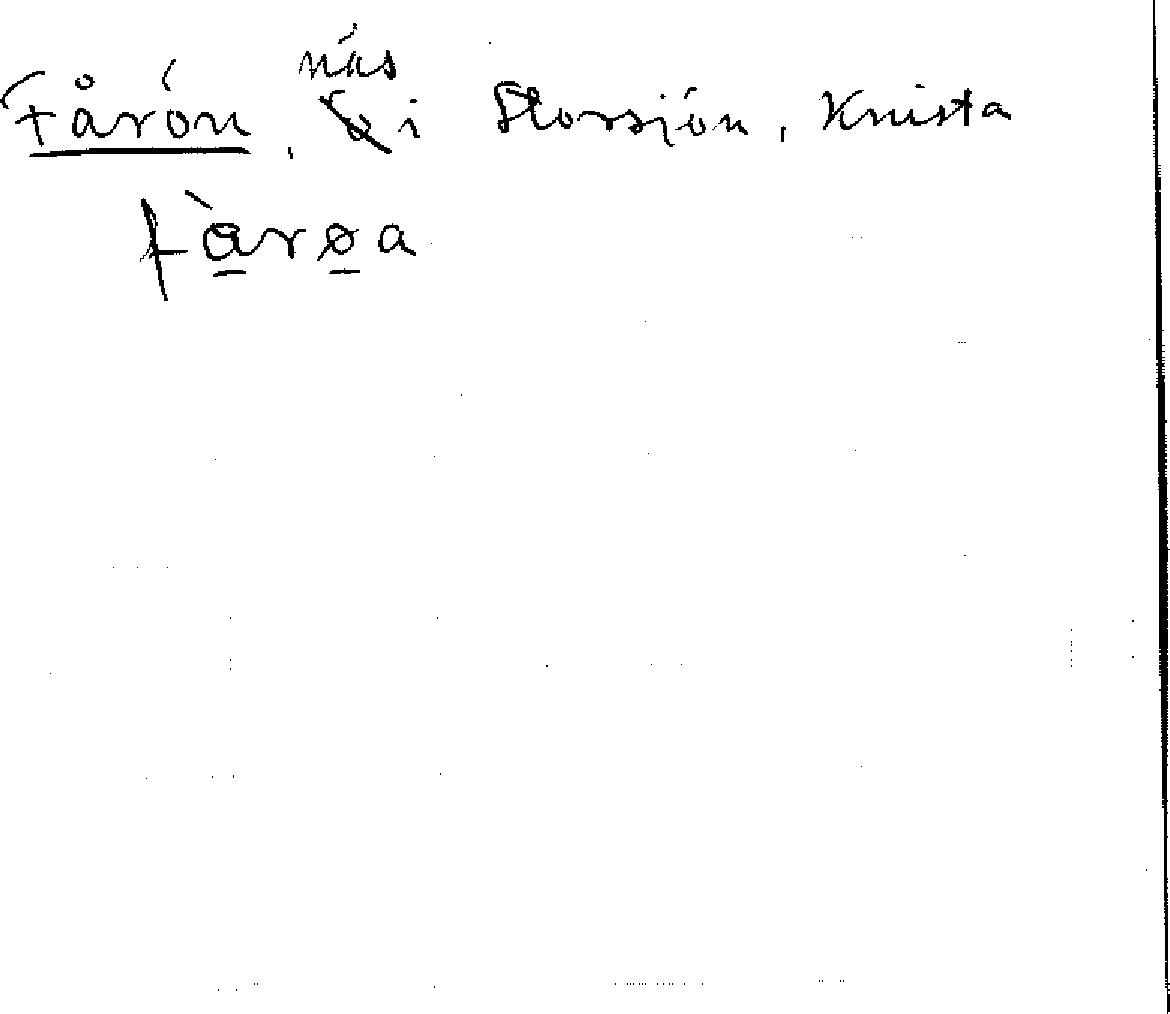 Fårön, näs i Storsjön, Knista
fàrøa